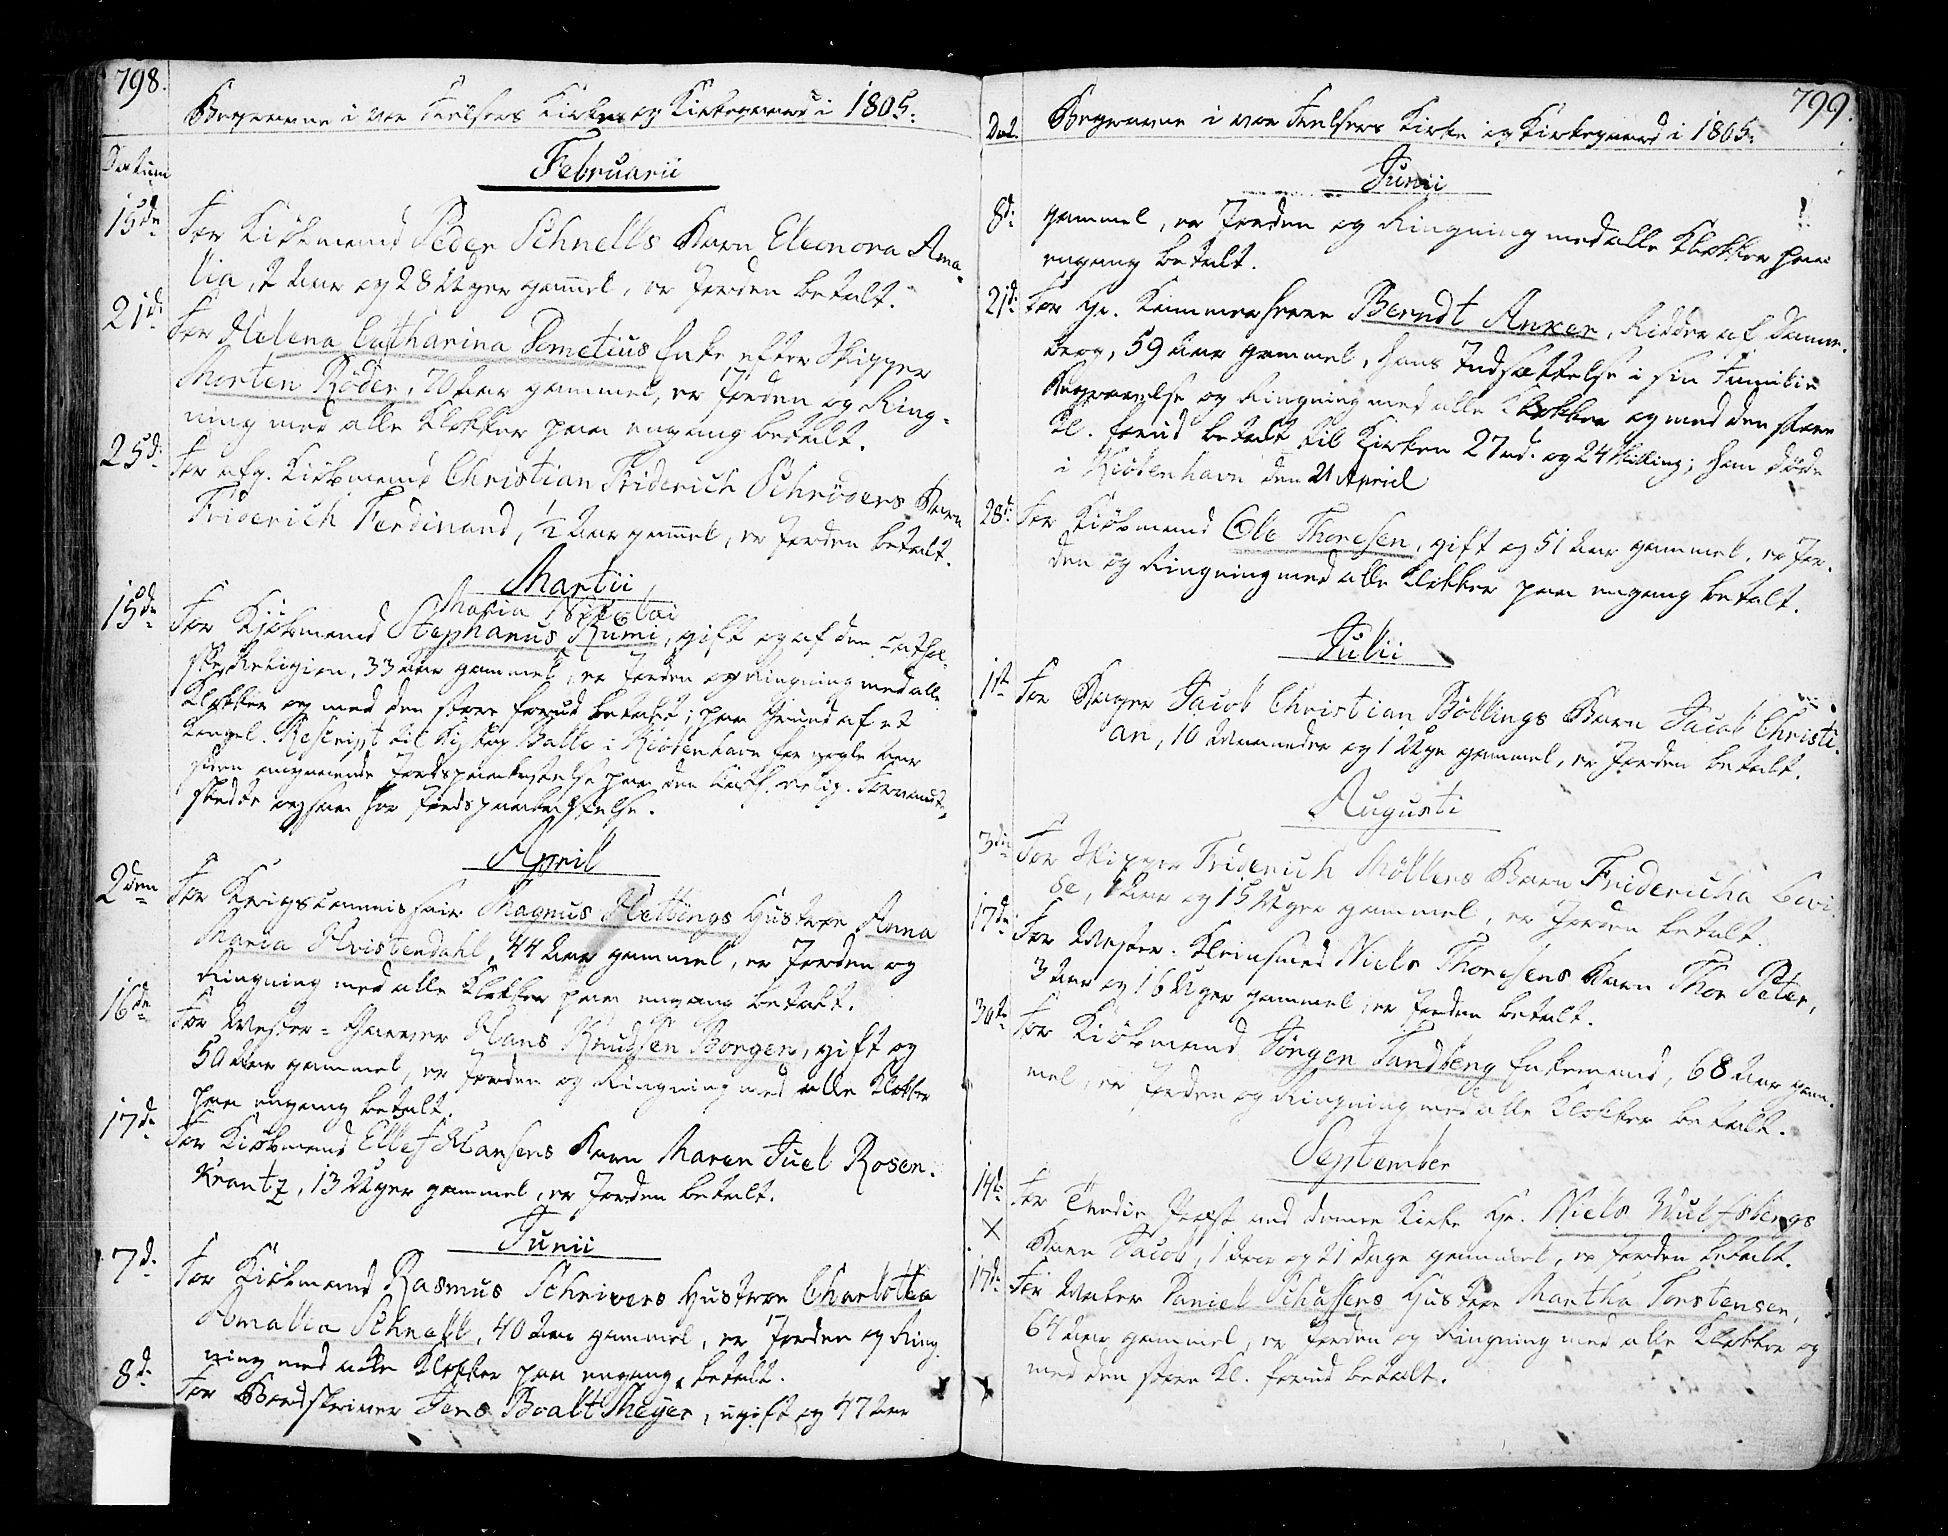 798.
Begravne i vor Frelsers Kirke og Kirkegaard i 1805:
Datum
Februarii
15de For Kiøbmand Peder Schnells Barn Eleonora Ama-
lia, 2 Aar og 28 Uger gammel, er Jorden betalt.
21d: For Helena Catharina Demetius Enke efter Skipper
Morten Røder, 70 Aar gammel, er Jorden og Ring-
ning med alle Klokker paa engang betalt.
25d: For afg. Kiøbmand Christian Friderich Schrøders Barn
Friderich Ferdinand, 1/2 Aar gammel, er Jorden betalt.
Martii
Maria Nicolai
15de For Kjøbmand Stephanus Rumi, gift og af den cathol-
ske Religion, 33 Aar gammel, er Jorden og Ringning med alle
Klokker og med den store forud betalt; paa Grund af et
Kongel. Rescript til Biskop Balle i Kiøbenhavn for nogle Aar
siden angaaende Jordspaakastelse paa den Cath. relig. Forvandt,
skedte ogsaa her Jordspaakastelse.
April
2den For Krigscommissair Magnus Hetbings Hustroe Anna
Maria Hvistendahl, 44 Aar gammel, er Jorden og
Ringning med alle Klokker paa engang betalt.
16de For Mester-Garver Hans Knudsen Borgen, gift og
50 Aar gammel, er Jorden og Ringning med alle Klokker
paa engang betalt.
17de For Kiøbmand Ellef Hansens Barn Maren Juel Rosen-
Krantz, 13 Uger gammel, er Jorden betalt.
Junii
7d: For Kiøbmand Rasmus Schrivers Hustroe Charlotta
Amalia Schnell, 40 Aar gammel, er Jorden og Ring-
ning med alle Klokker paa engang betalt.
8d: For Bordskriver Jens Boalt Meyer, ugift og 47 Aar
799.
Dat. Begravne i vor Frelsers Kirke og Kirkegaard i 1805:
Junii
8d: gammel, er Jorden og Ringning med alle Klokker paa
engang betalt.
21d: For Hr. Kammerherre Berndt Anker, Ridder af Danne-
brog, 59 Aar gammel, hans Indsættelse i sin Familie
Begravelse og Ringning med alle Klokker og med den store
Kl. forud betalt til Kirken 27 rd. og 24 Skilling; han døde
i Kiøbenhavn den 21 April
28d: For Kiøbmand Ole Thoresen, gift og 51 Aar gammel, er Jor-
den og Ringning med alle Klokker paa engang betalt.
Julii
1ste For Bager Jacob Christian Bøllings Barn Jacob Christi-
an, 10 Maaneder og 1 Uge gammel, er Jorden betalt.
Augusti
3die For Skipper Friderich Møllers Barn Fridericha Lovi-
se, 1 Aar og 15 Uger gammel, er Jorden betalt.
17de For Mester-Kleinsmed Niels Thoresens Barn Thor Peter,
3 Aar og 16 Uger gammel, er Jorden betalt.
30te For Kiøbmand Jørgen Sandberg Enkemand, 68 Aar gam-
mel, er Jorden og Ringning med alle Klokker betalt.
September
14d: For Tredie Præst ved denne Kirke Hr. Niels Wulfsbergs
X Barn Jacob, 1 Aar og 21 Dage gammel, er Jorden betalt.
17de For Daniel Schussens Hustroe Martha Torstensen,
64 Aar gammel, er Jorden og Ringning med alle Klokker og
med den store Kl. forud betalt.